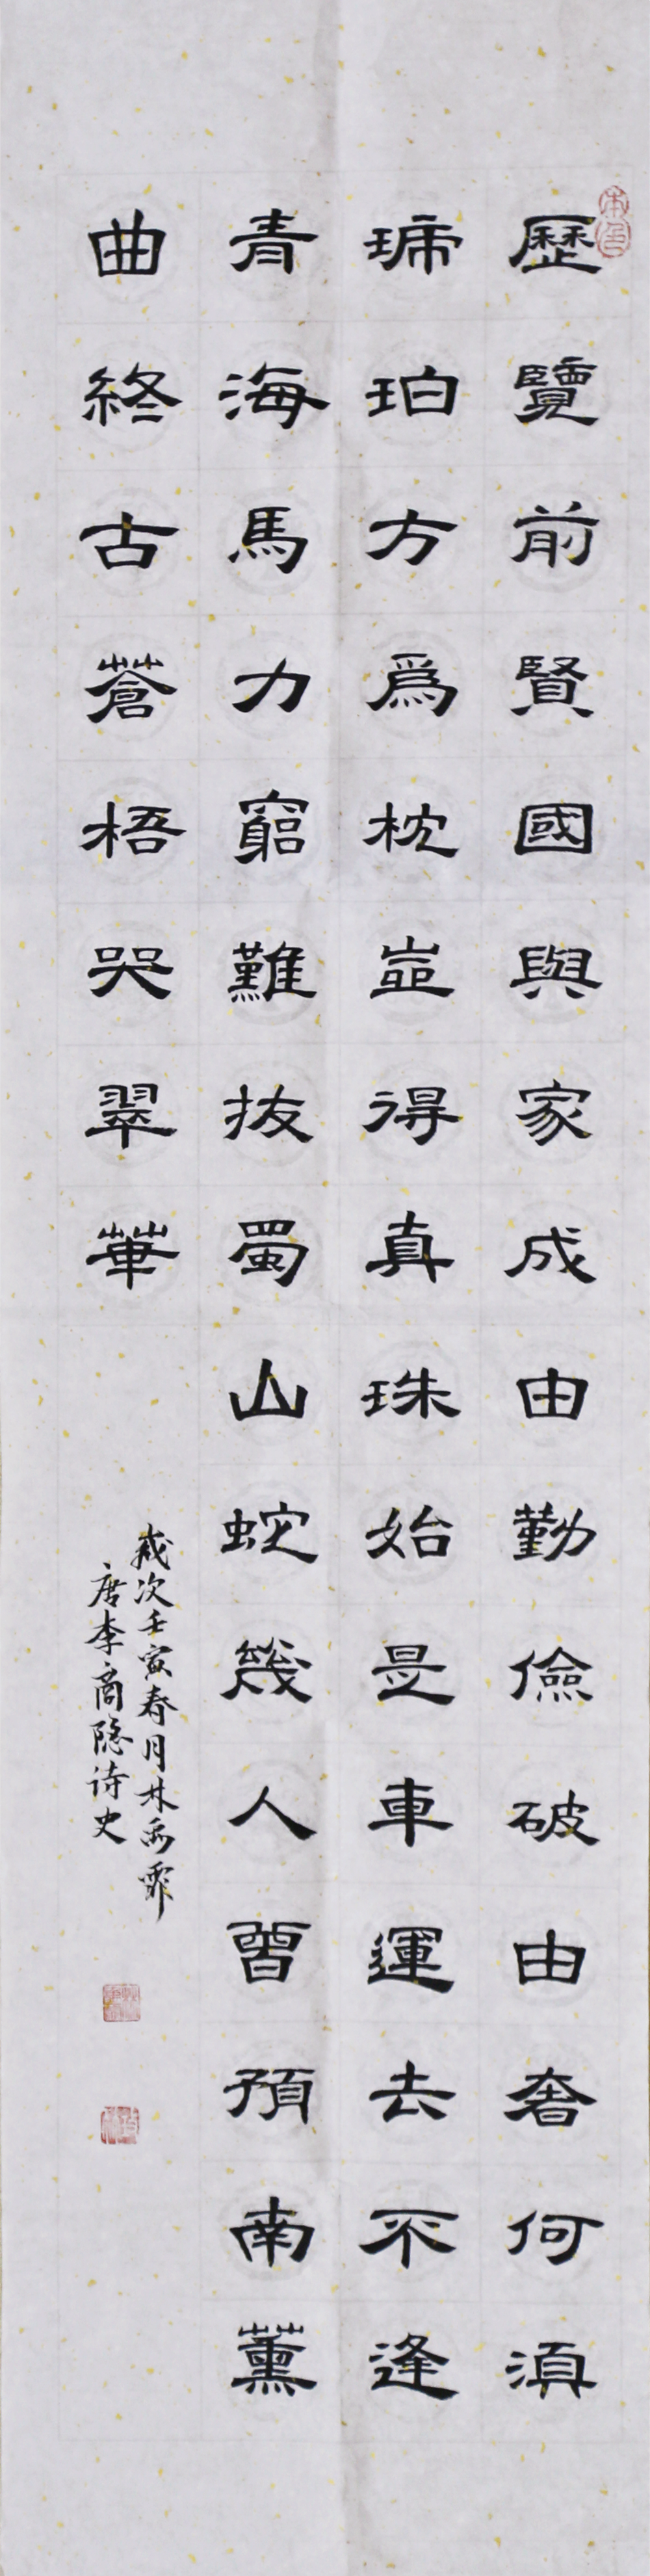 歷覽前賢國與家成由勤儉破由奢何湏
琋珀方為枕豈得真珠始是車運去不逢
青海馬力窮難拔蜀山蛇幾人曾預南薰
曲終古蒼梧哭翠華
歲次壬寅春月林雨霏
唐李商隐诗史